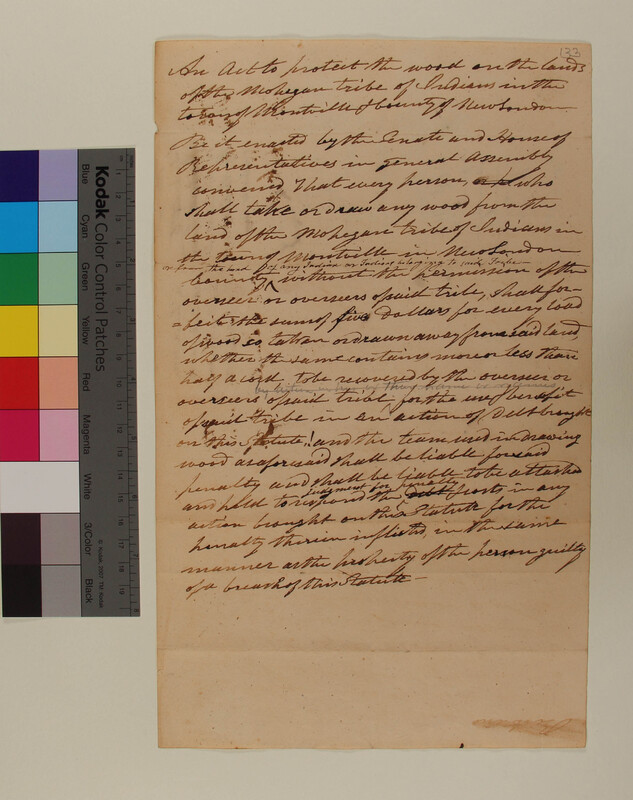 133
An Act to protect the wood on the lands
of the Mohegan tribe of Indians in the
town of Montville & County of New London
Be it enacted by the Senate and House of
Representatives in general Assembly
convened, That every person, who
shall take or draw any wood from the
land of the Mohegan tribe of Indians in
the town of Montville in New London
or from the land of any Indian or Indians belonging to said Tribe
County, without the permission of the
overseer or overseers of said tribe, shall for-
=feit the sum of five Dollars for every load
of wood so taken or drawn away from said land,
whether the same contains more or less than
half a cord, to be recovered by the overseer or
overseers of said tribe for the use & benefit
of said tribe in an action of Debt brought
on this Statute, and the team used in drawing
wood as aforesaid shall be liable for said
penalty and shall be liable to be attached
judgment for penalty
and held to respond the debt & costs in any
action brought on this Statute for the
penalty therein inflicted, in the same
manner as the property of the person guilty
of a breach of this Statute —
Kodak Color Control Patches
Blue
Cyan
Green
Yellow
Red
Magenta
White
3/Color
Black
© Kodak, 2007 TM: Kodak